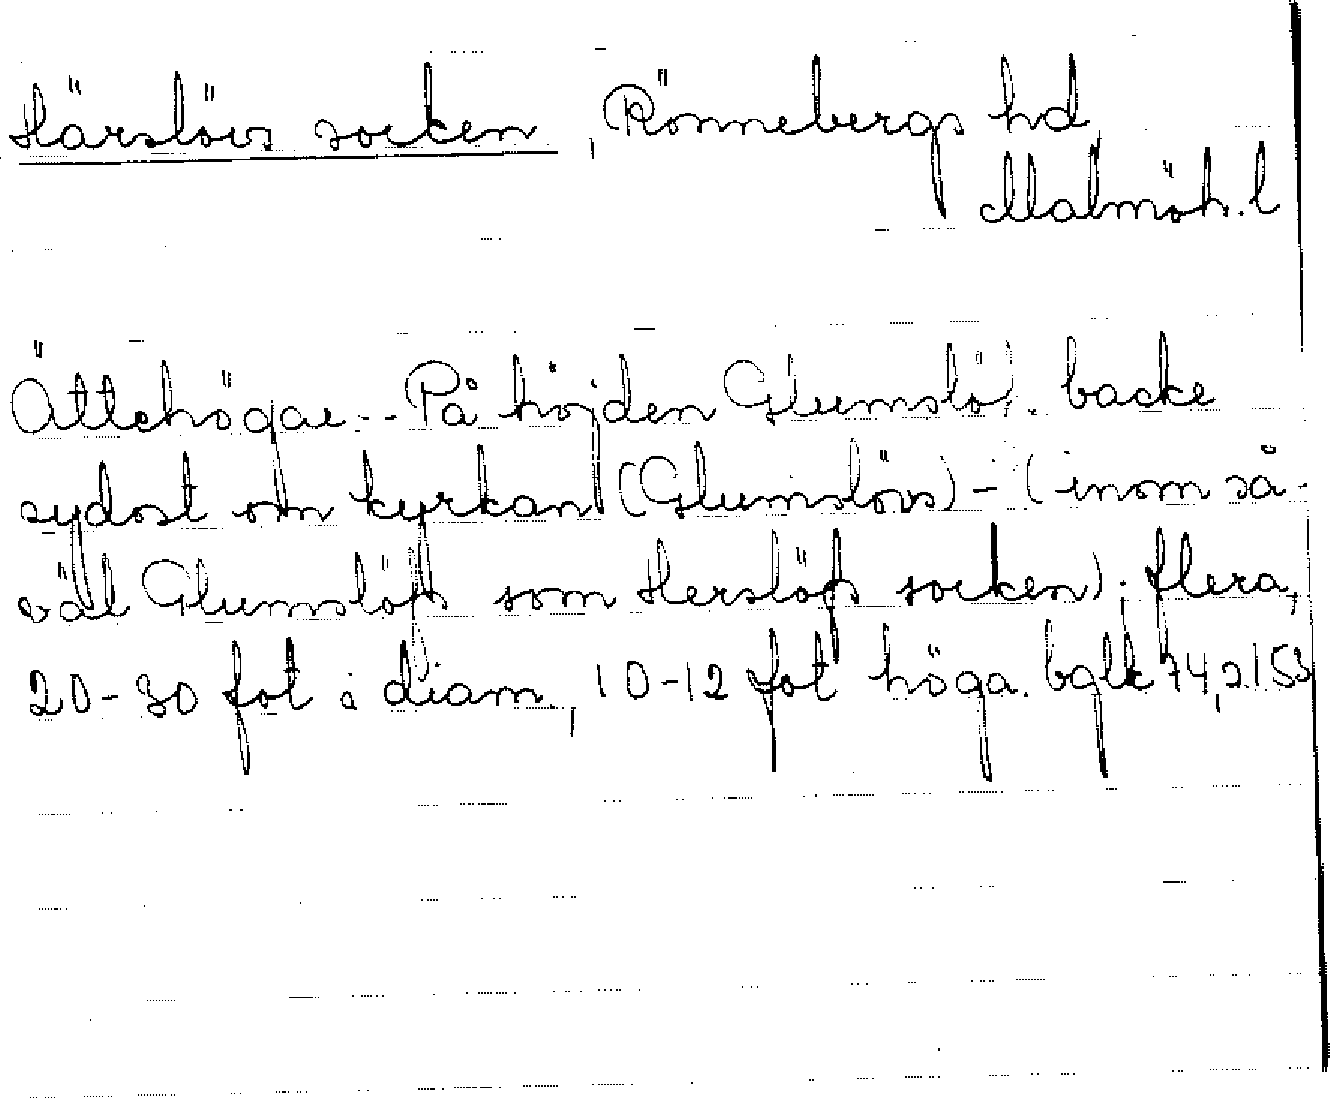 Härslövs socken, Rönnebergs hd,
Malmöh. l
Ättehögar.- - På höjden Glumslöf. backe
sydost om kyrkan (Glumslövs) - (inom så-
väl Glumslöfs som Herslöfs socken); flera,
20-30 fot i diam., 10-12 fot höga.